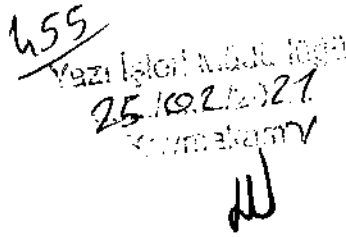 455
Yazı İşleri Müdürlüğü
25/02/2021
Kaymakam V